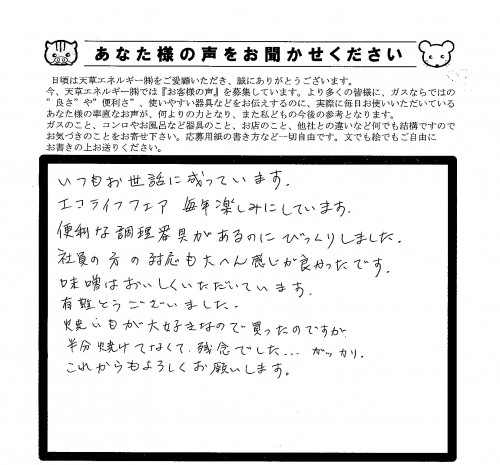 あなた様の声をお聞かせください
日頃は天草エネルギー㈱をご愛顧いただき、誠にありがとうございます。
今、天草エネルギー㈱では『お客様の声』を募集しています。より多くの皆様に、ガスならではの
"良さ"や"便利さ"、使いやすい器具などをお伝えするのに、実際に毎日お使いいただいている
あなた様の率直なお声が、何よりの力となり、また私どもの今後の参考となります。
ガスのこと、コンロやお風呂など器具のこと、お店のこと、他社との違いなど何でも結構ですので
お気づきのことをお寄せ下さい。応募用紙の書き方など一切自由です。文でも絵でもご自由に
お書きの上お送りください。
いつもお世話に成っています。
エコライフフェア 毎年楽しみにしています。
便利な調理器具があるのにびっくりしました。
社員の方の対応も大へん感じが良かったです。
味噌はおいしくいただいています。
有難とうございました。
焼いもが大好きなので買ったのですが
半分焼けてなくて、残念でした... ガッカリ。
これからもよろしくお願いします。